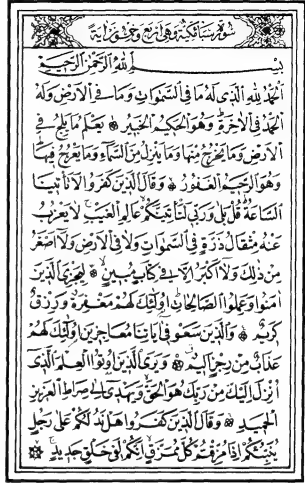 سورة سبأ مكية وهي أربع وخمسون آية
بِسْمِ اللهِ الرَّحْمٰنِ الرَّحِيمِ
اَلْحَمْدُ لِلّٰهِ الَّذِي لَهُ مَا فِي السَّمٰوَاتِ وَمَا فِي الْاَرْضِ وَلَهُ
الْحَمْدُ فِي الْاٰخِرَةِ وَهُوَ الْحَكِيمُ الْخَبِيرُ ۞ يَعْلَمُ مَا يَلِجُ فِي
الْاَرْضِ وَمَا يَخْرُجُ مِنْهَا وَمَا يَنْزِلُ مِنَ السَّمَاءِ وَمَا يَعْرُجُ فِيهَا
وَهُوَ الرَّحِيمُ الْغَفُورُ ۞ وَقَالَ الَّذِينَ كَفَرُوا لَا تَأْتِينَا
السَّاعَةُ قُلْ بَلٰى وَرَبِّي لَتَأْتِيَنَّكُمْ عَالِمِ الْغَيْبِ لَا يَعْزُبُ
عَنْهُ مِثْقَالُ ذَرَّةٍ فِي السَّمٰوَاتِ وَلَا فِي الْاَرْضِ وَلَا اَصْغَرُ
مِنْ ذٰلِكَ وَلَا اَكْبَرُ اِلَّا فِي كِتَابٍ مُبِينٍ ۞ لِيَجْزِيَ الَّذِينَ
اٰمَنُوا وَعَمِلُوا الصَّالِحَاتِ اُولٰئِكَ لَهُمْ مَغْفِرَةٌ وَرِزْقٌ
كَرِيمٌ ۞ وَالَّذِينَ سَعَوْ فِي اٰيَاتِنَا مُعَاجِزِينَ اُولٰئِكَ لَهُمْ
عَذَابٌ مِنْ رِجْزٍ اَلِيمٌ ۞ وَيَرَى الَّذِينَ اُوتُوا الْعِلْمَ الَّذِي
اُنْزِلَ اِلَيْكَ مِنْ رَبِّكَ هُوَ الْحَقَّ وَيَهْدِي اِلٰى صِرَاطِ الْعَزِيزِ
الْحَمِيدِ ۞ وَقَالَ الَّذِينَ كَفَرُوا هَلْ نَدُلُّكُمْ عَلٰى رَجُلٍ
يُنَبِّئُكُمْ اِذَا مُزِّقْتُمْ كُلَّ مُمَزَّقٍ اِنَّكُمْ لَفِي خَلْقٍ جَدِيدٍ ۞